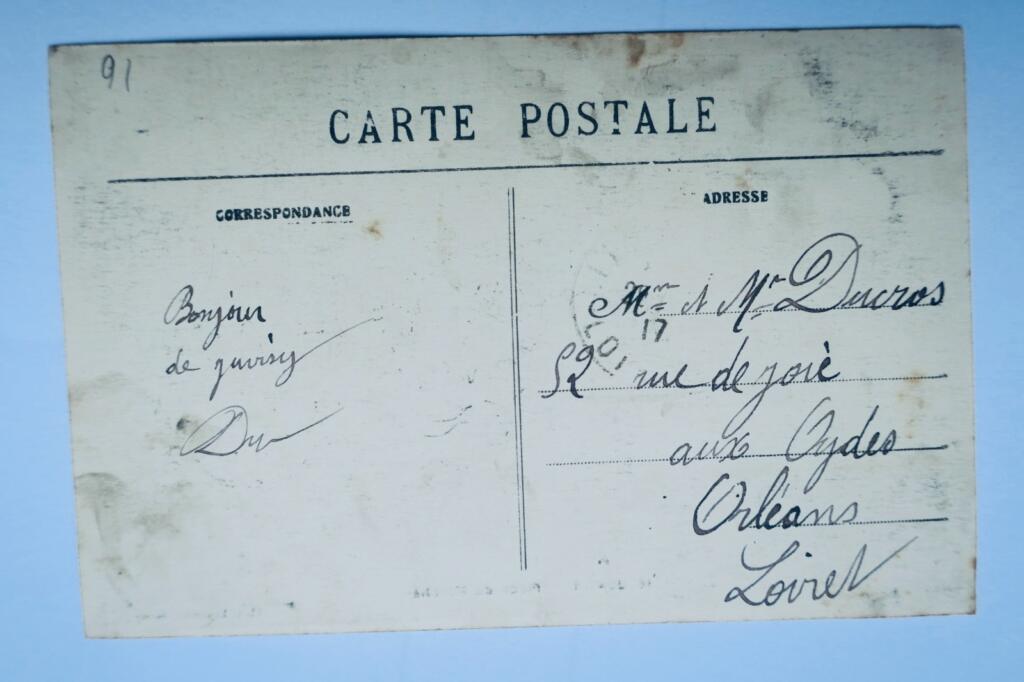 91
CARTE POSTALE
CORRESPONDANCE
ADRESSE
Bonjour
de juvisy
Mme et Mr Ducros
52 rue de joie
aux Aydes
Orléans
Loiret
17
LOI